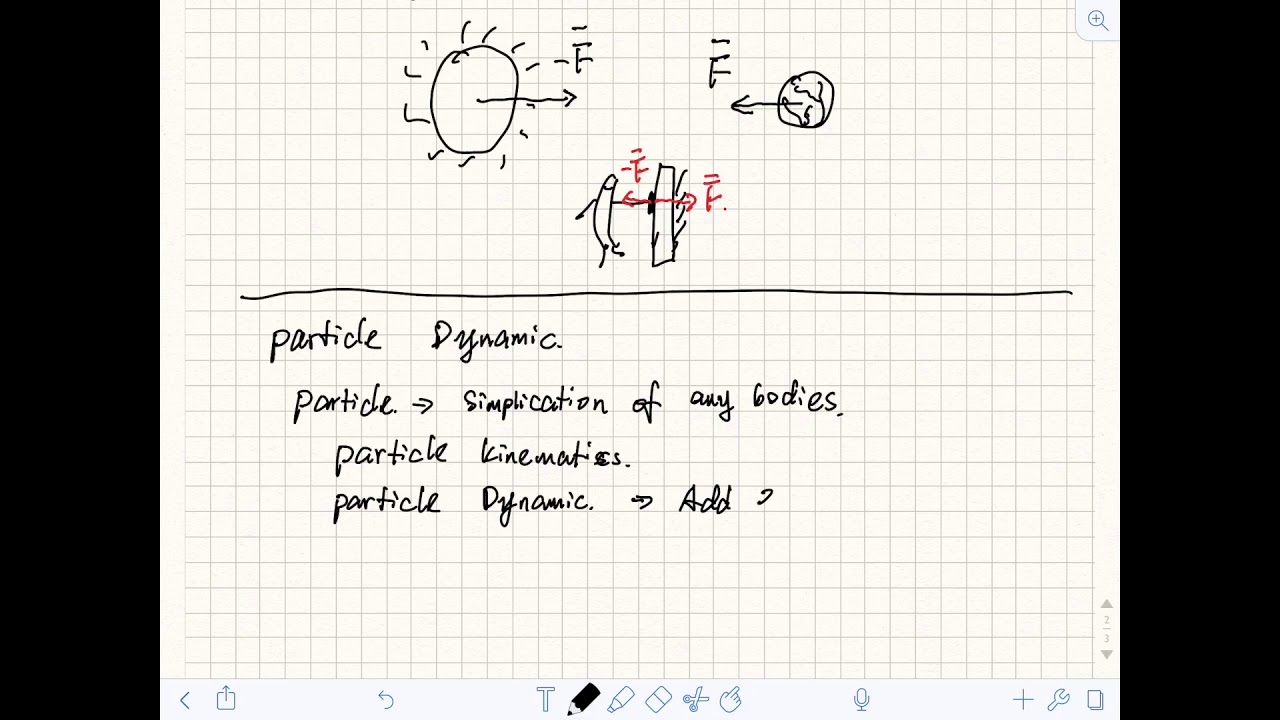 -F̅
F̅
-F̅
F̅.
particle Dynamic.
particle. → simplication of any bodies.
particle kinematics.
particle Dynamic. → Add
T
2
3